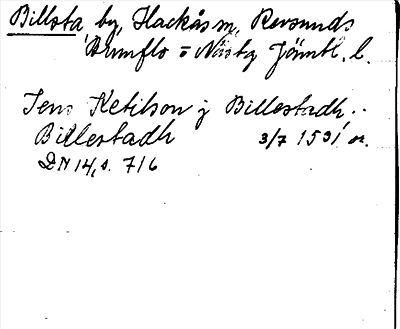 Billsta by, Hackås sn, Revsunds
Brunflo o Näs tg Jämtl. l.
Jens Ketilson j Billestadh ..
Billestadh 3/7 1531 or.
DN 14, s. 716